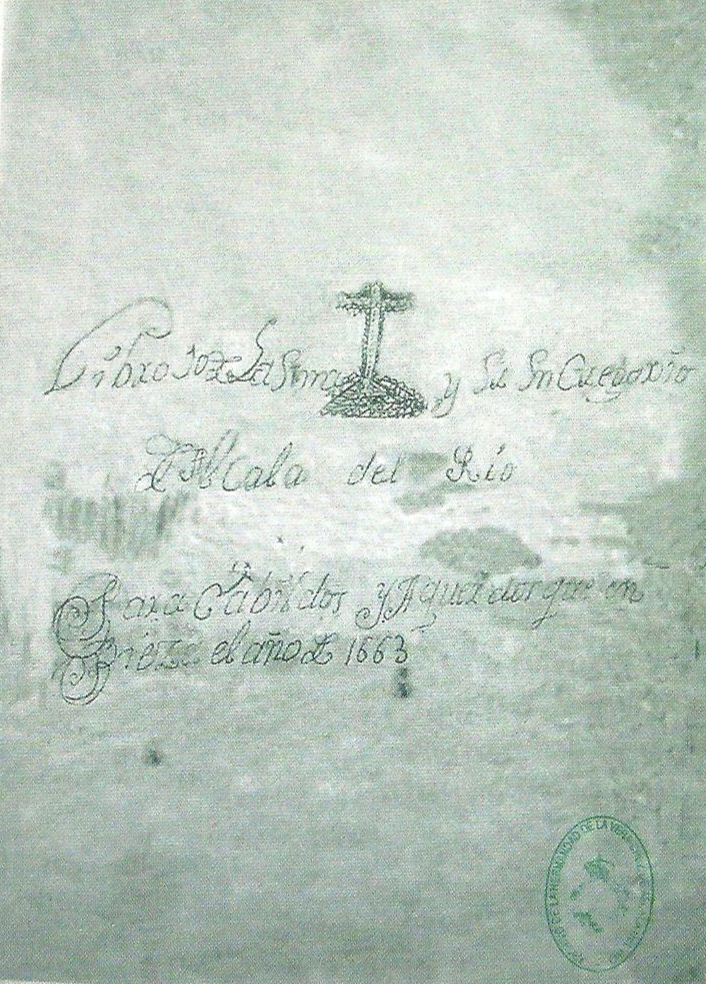 Libro de La Sma y Su Sn Gregorio
D Alcala del Rio
Para Cabildos y Aquerdos que en
Pieza el año D 1663
DE LA HERMANDAD DE LA VERA